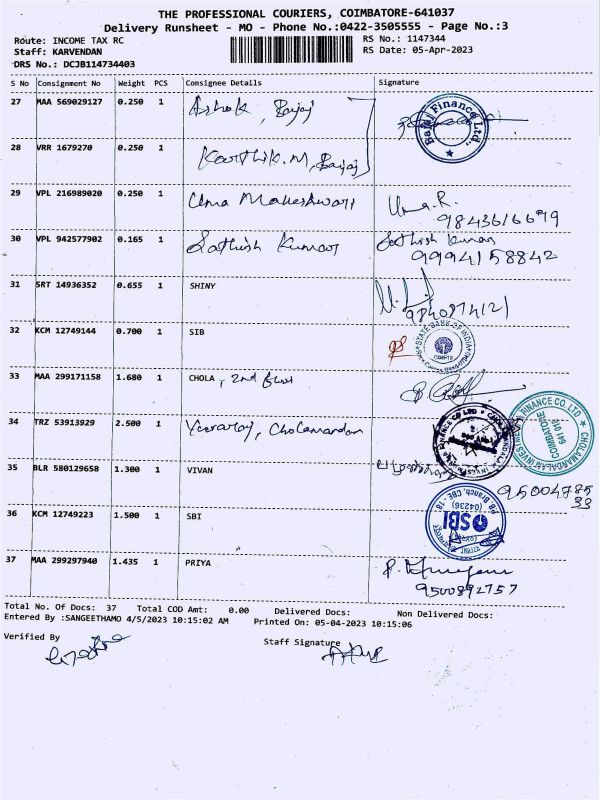 THE PROFESSIONAL COURIERS, COIMBATORE-641037
Delivery Runsheet - MO - Phone No.:0422-3505555 - Page No.:3
Route: INCOME TAX RC
RS No.: 1147344
Staff: KARVENDAN
RS Date: 05-Apr-2023
DRS No.: DCJB114734403
S No Consignment No Weight PCS Consignee Details Signature
27 MAA 569029127 0.250 1 Ashok, Bajaj
Bajaj Finance Ltd.,
28 VRR 1679270 0.250 1 Karthik.M, Bajaj
29 VPL 216989020 0.250 1 Uma Maheshwari Uma.R.
9843616699
30 VPL 942577902 0.165 1 Sathish Kumar Sathish Kumar
9994158842
31 SRT 14936352 0.655 1 SHINY
9840874121
32 KCM 12749144 0.700 1 SIB
STATE BANK OF INDIA
33 MAA 299171158 1.680 1 CHOLA, 2nd floor
34 TRZ 53913929 2.500 1 Yuvaraj, Cholamandam
FINANCE CO LTD
CHOLAMANDALAM INVESTMENT
COIMBATORE
641 018
35 BLR 580129658 1.300 1 VIVAN
95004785
33
36 KCM 12749223 1.500 1 SBI
P.B. Branch, CBE - 18
(04236)
SBI
37 MAA 299297940 1.435 1 PRIYA
9500892757
Total No. Of Docs: 37 Total COD Amt: 0.00 Delivered Docs: Non Delivered Docs:
Entered By :SANGEETHAMO 4/5/2023 10:15:02 AM Printed On: 05-04-2023 10:15:06
Verified By
Staff Signature